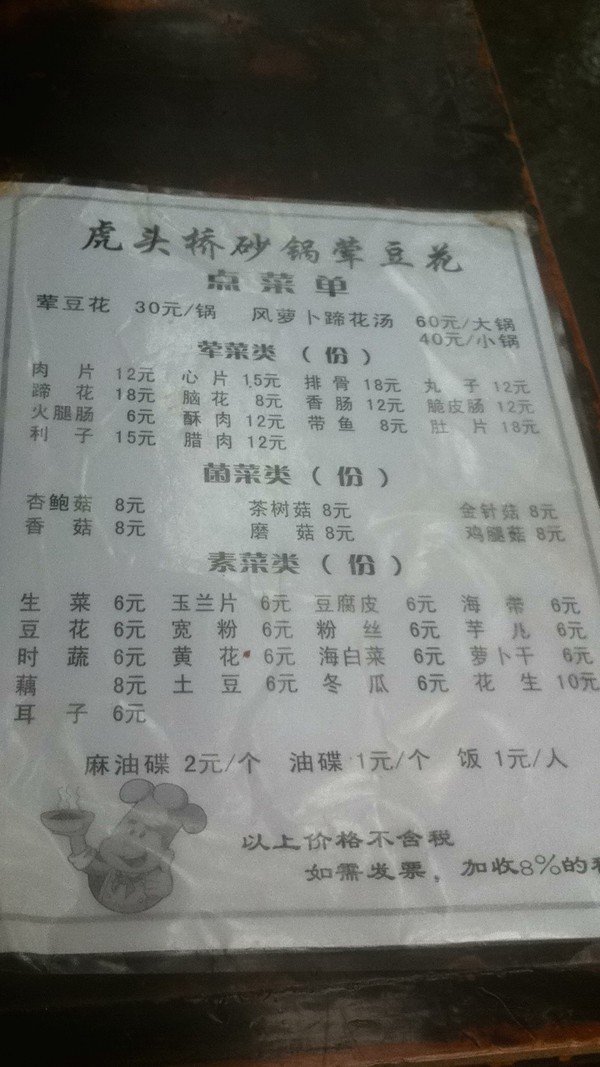 虎头桥砂锅荤豆花
点菜单
荤豆花 30元/锅 风萝卜蹄花汤 60元/大锅
40元/小锅
荤菜类（份）
肉片 12元 心片 15元 排骨 18元 丸子 12元
蹄花 18元 脑花 8元 香肠 12元 脆皮肠 12元
火腿肠 6元 酥肉 12元 带鱼 8元 肚片 18元
利子 15元 腊肉 12元
菌菜类（份）
杏鲍菇 8元 茶树菇 8元 金针菇 8元
香菇 8元 磨菇 8元 鸡腿菇 8元
素菜类（份）
生菜 6元 玉兰片 6元 豆腐皮 6元 海带 6元
豆花 6元 宽粉 6元 粉丝 6元 芋儿 6元
时蔬 6元 黄花 6元 海白菜 6元 萝卜干 6元
藕 8元 土豆 6元 冬瓜 6元 花生 10元
耳子 6元
麻油碟 2元/个 油碟 1元/个 饭 1元/人
以上价格不含税
如需发票，加收8%的